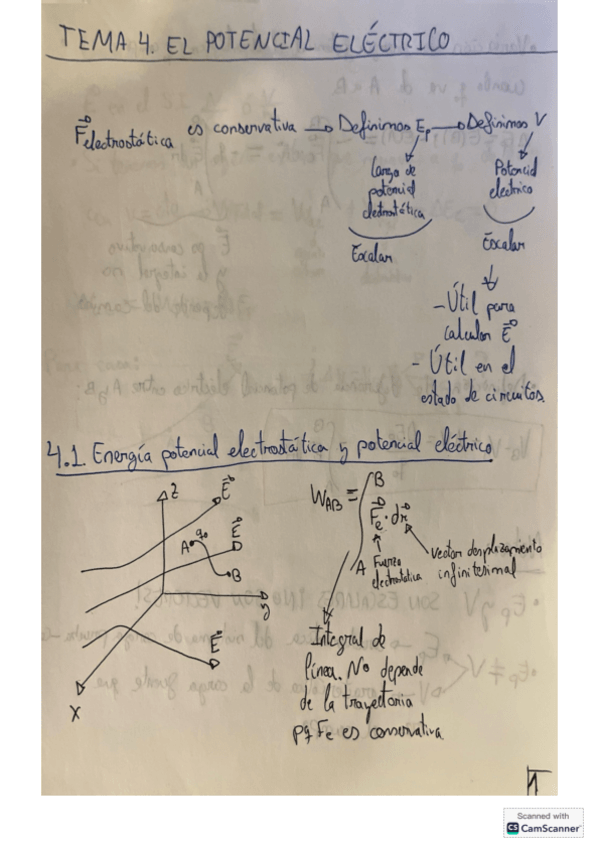 TEMA 4. EL POTENCIAL ELÉCTRICO
F⃗electrostática es conservativa → Definimos Ep → Definimos V
Potencial
electrico
potencial
electrostática
Escalar
Escalar
- Útil para
calcular E⃗
- Útil en el
estado de circuitos
4.1. Energía potencial electrostática y potencial eléctrico
z
E⃗
W_AB = ∫_A^B F⃗e · dr⃗
A q₀
E⃗
B
Fuerza
electrostática
vector desplazamiento
infinitesimal
y
E⃗
x
Integral de
línea. No depende
de la trayectoria
pq Fe es conservativa
1
Scanned with
CS CamScanner